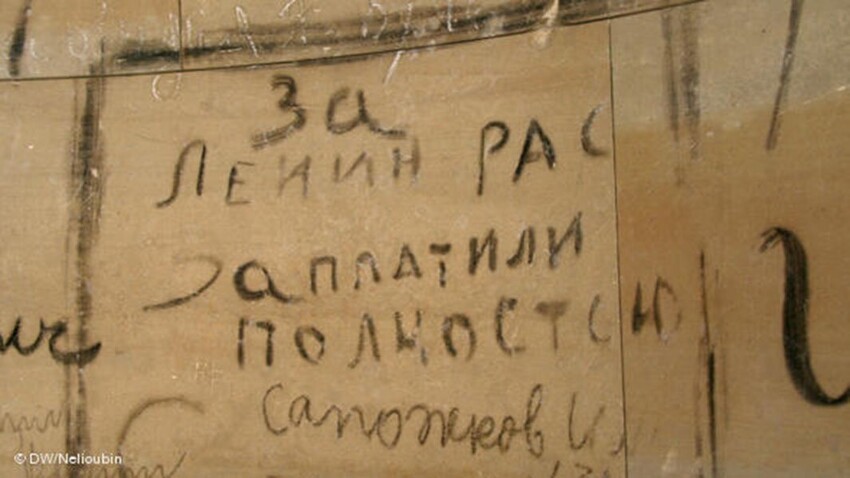 За
ЛЕНИН РАС
ЗАПЛАТИЛИ
ПОЛНОСТСЮ
Сапожков И
© DW/Nelioubin